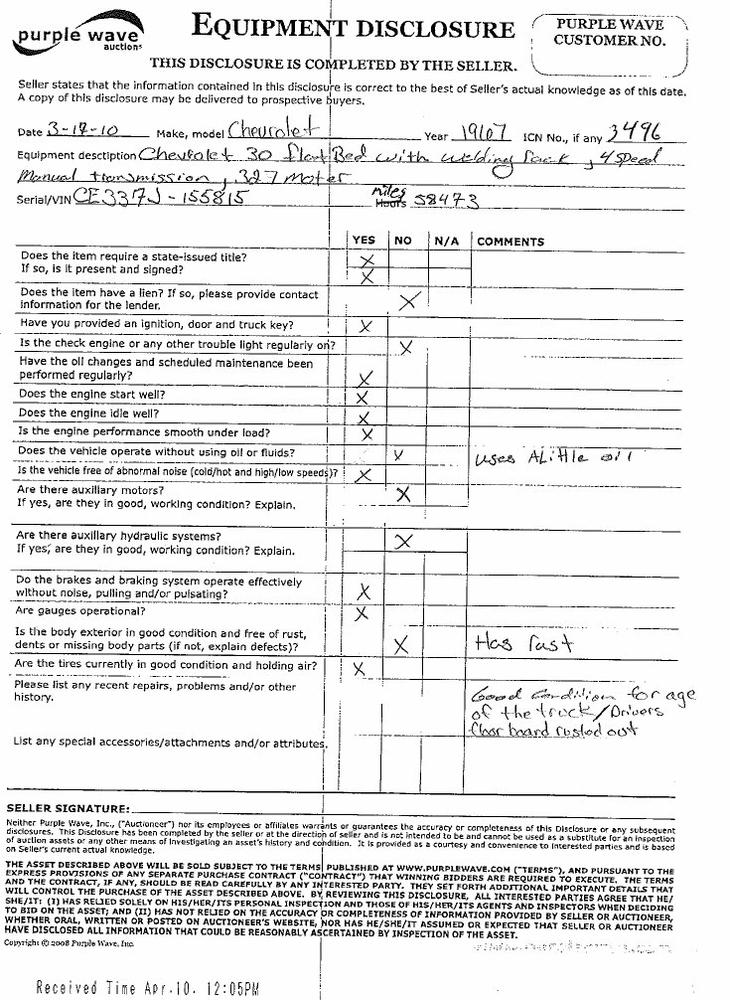 purple wave
auctions
EQUIPMENT DISCLOSURE
PURPLE WAVE
CUSTOMER NO.
THIS DISCLOSURE IS COMPLETED BY THE SELLER.
Seller states that the information contained in this disclosure is correct to the best of Seller's actual knowledge as of this date.
A copy of this disclosure may be delivered to prospective buyers.
Date 3-17-10 Make, model Chevrolet Year 1967 ICN No., if any 3496
Equipment desctiption Chevrolet 30 flat Bed with welding pack, 4 speed
Manual transmission, 327 motor
Serial/VIN CE337J-155815 miles Hours 58473
YES NO N/A COMMENTS
Does the item require a state-issued title? X
If so, is it present and signed? X
Does the item have a lien? If so, please provide contact
information for the lender. X
Have you provided an ignition, door and truck key? X
Is the check engine or any other trouble light regularly on? X
Have the oil changes and scheduled maintenance been
performed regularly? X
Does the engine start well? X
Does the engine idle well? X
Is the engine performance smooth under load? X
Does the vehicle operate without using oil or fluids? X uses A Little oil
Is the vehicle free of abnormal noise (cold/hot and high/low speeds)? X
Are there auxiliary motors? X
If yes, are they in good, working condition? Explain.
Are there auxiliary hydraulic systems? X
If yes, are they in good, working condition? Explain.
Do the brakes and braking system operate effectively
without noise, pulling and/or pulsating? X
Are gauges operational? X
Is the body exterior in good condition and free of rust,
dents or missing body parts (if not, explain defects)? X Has rust
Are the tires currently in good condition and holding air? X
Please list any recent repairs, problems and/or other
history.
Good Condition for age
of the truck/Drivers
floor board rusted out
List any special accessories/attachments and/or attributes.
SELLER SIGNATURE:
Neither Purple Wave, Inc., ("Auctioneer") nor its employees or affiliates warrants or guarantees the accuracy or completeness of this Disclosure or any subsequent
disclosures. This Disclosure has been completed by the seller or at the direction of seller and is not intended to be and cannot be used as a substitute for an inspection
of auction assets or any other means of investigating an asset's history and condition. It is provided as a courtesy and convenience to interested parties and is based
on Seller's current actual knowledge.
THE ASSET DESCRIBED ABOVE WILL BE SOLD SUBJECT TO THE TERMS PUBLISHED AT WWW.PURPLEWAVE.COM ("TERMS"), AND PURSUANT TO THE
EXPRESS PROVISIONS OF ANY SEPARATE PURCHASE CONTRACT ("CONTRACT") THAT WINNING BIDDERS ARE REQUIRED TO EXECUTE. THE TERMS
AND THE CONTRACT, IF ANY, SHOULD BE READ CAREFULLY BY ANY INTERESTED PARTY. THEY SET FORTH ADDITIONAL IMPORTANT DETAILS THAT
WILL CONTROL THE PURCHASE OF THE ASSET DESCRIBED ABOVE. BY REVIEWING THIS DISCLOSURE, ALL INTERESTED PARTIES AGREE THAT HE/
SHE/IT: (I) HAS RELIED SOLELY ON HIS/HER/ITS PERSONAL INSPECTION AND THOSE OF HIS/HER/ITS AGENTS AND INSPECTORS WHEN DECIDING
TO BID ON THE ASSET; AND (II) HAS NOT RELIED ON THE ACCURACY OR COMPLETENESS OF INFORMATION PROVIDED BY SELLER OR AUCTIONEER,
WHETHER ORAL, WRITTEN OR POSTED ON AUCTIONEER'S WEBSITE, NOR HAS HE/SHE/IT ASSUMED OR EXPECTED THAT SELLER OR AUCTIONEER
HAVE DISCLOSED ALL INFORMATION THAT COULD BE REASONABLY ASCERTAINED BY INSPECTION OF THE ASSET.
Copyright © 2008 Purple Wave, Inc.
Received Time Apr.10. 12:05PM